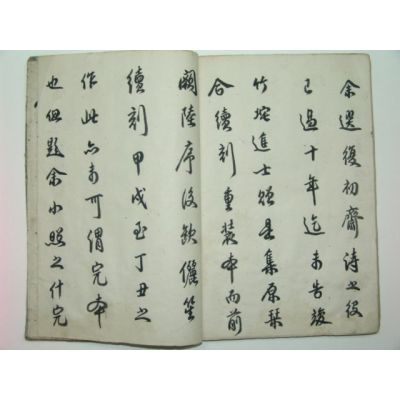 余選復初齋詩之役
已過十年迄未告竣
竹垞進士頌是集原槧
合續刻重裝本而前
闕陸序後欽儷笙
續刻甲戌至丁丑之
作此亦未可謂完本
也但題余小照之什完